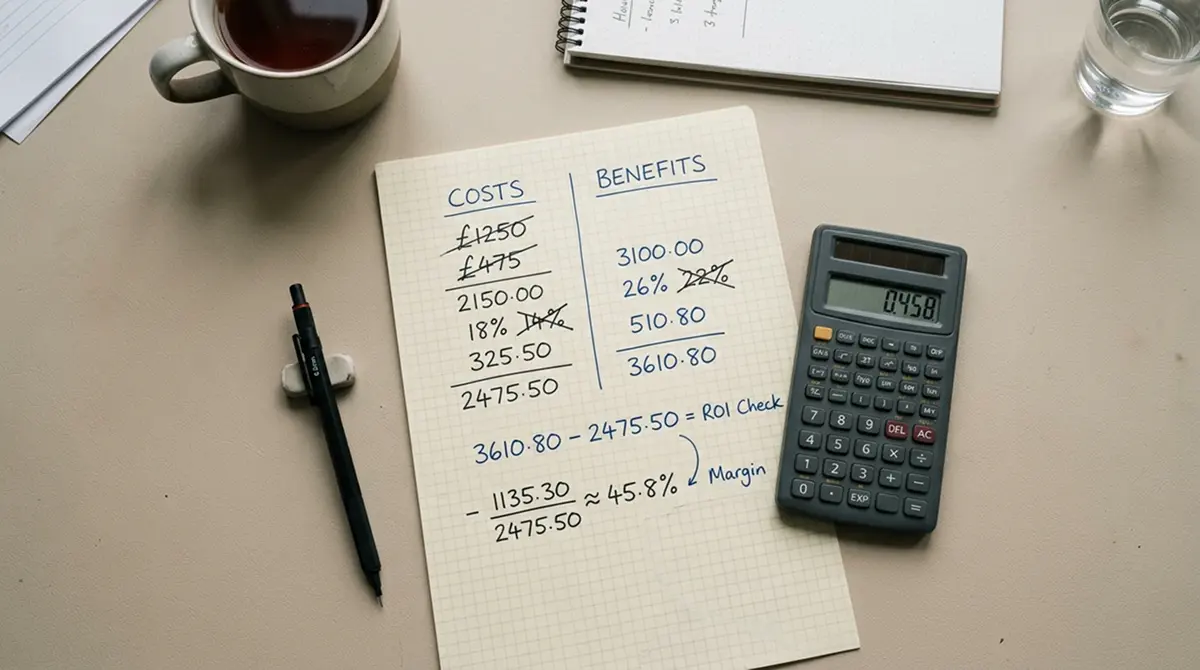 COSTS
£1250
£475
2150.00
18% 14%
325.50
2475.50
BENEFITS
3100.00
26% 22%
510.80
3610.80
3610.80 – 2475.50 = ROI Check
Margin
– 1135.30 / 2475.50 ≈ 45.8%
0.458
7 8 9 DEL AC
4 5 6 × ÷
1 2 3 + −
0 · EXP =